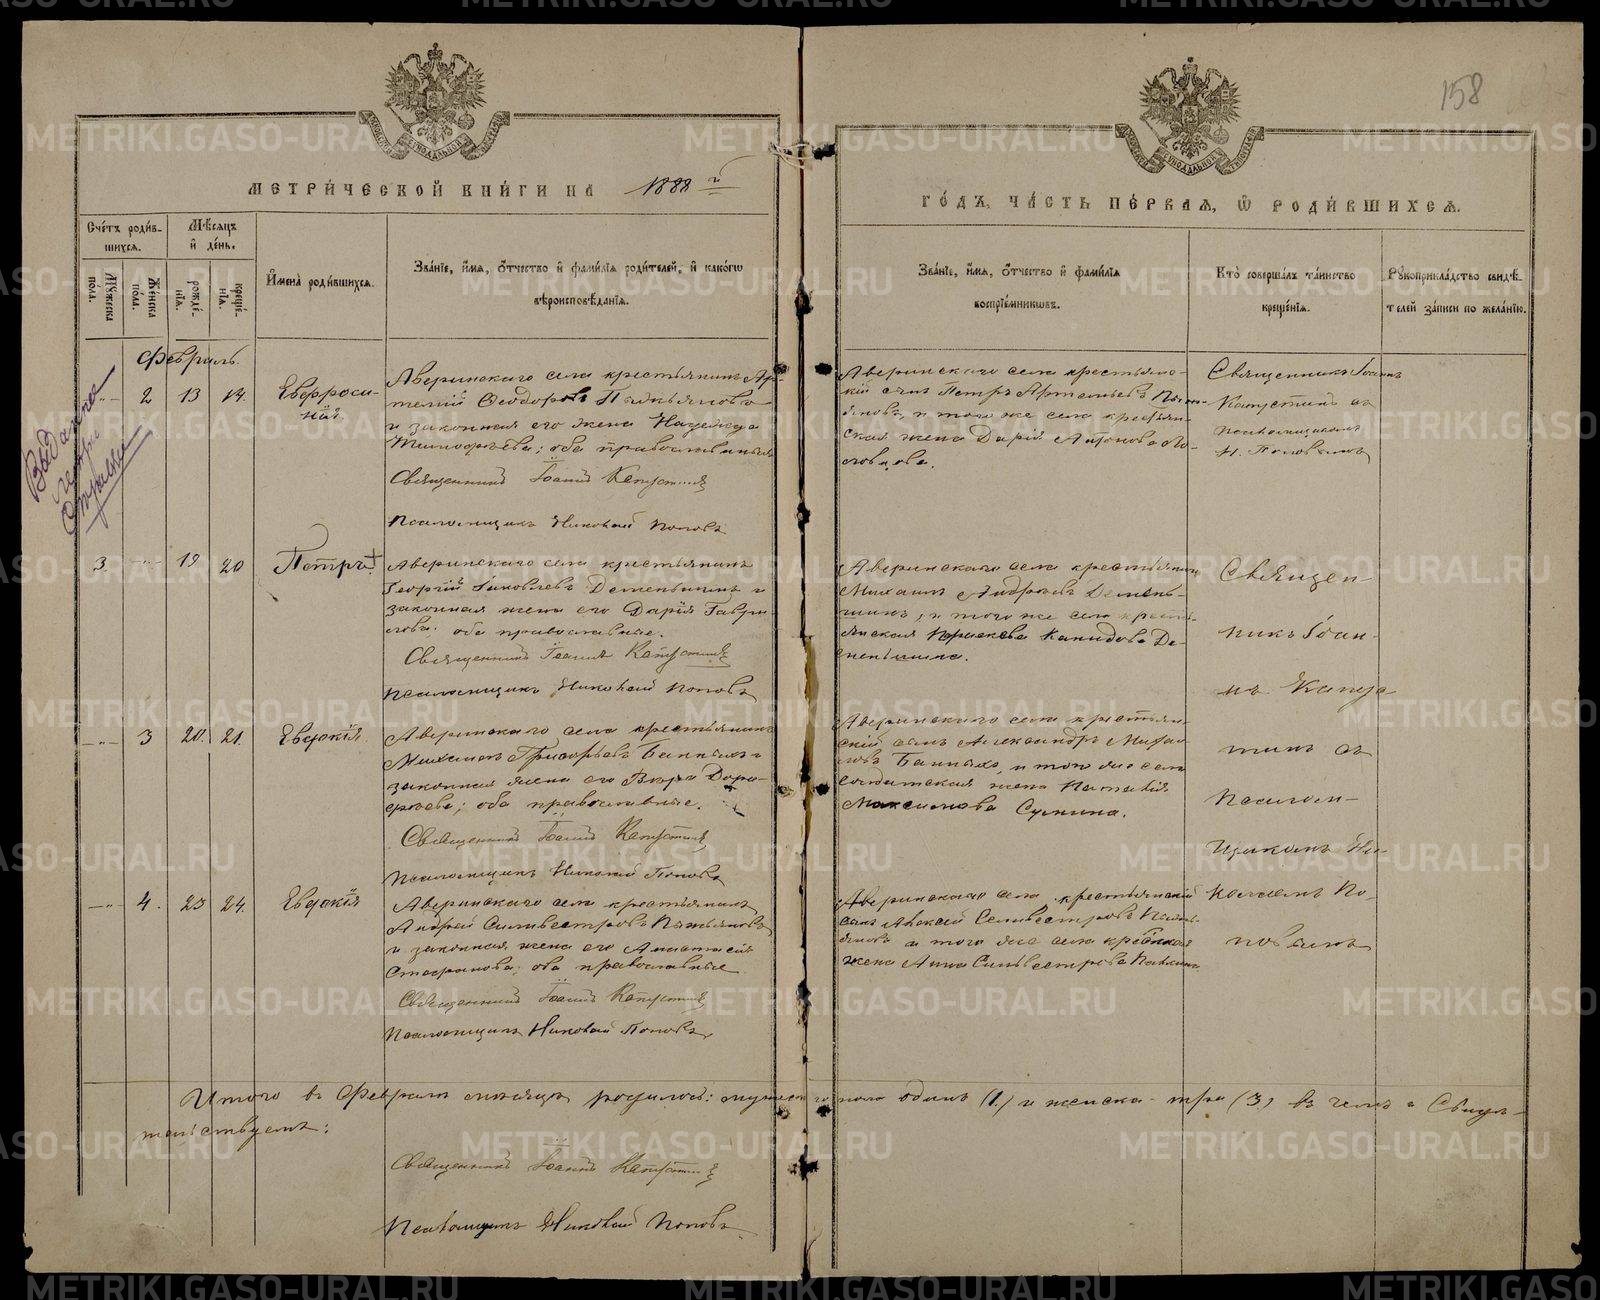 158
МЕТРИ́ЧЕСКОЙ КНИ́ГИ НА 1888 г.
ГО́ДЪ, ЧА́СТЬ ПЕ́РВАЯ, Ѿ РОДИ́ВШИХСЯ.
Сче́тъ роди́в-
шихся.
Му́жеска пола.
Же́нска по́ла.
Мѣ́сяцъ
и҆ де́нь.
рожде́-
нїя.
креще́-
нїя.
И҆мена̀ роди́вшихся.
Зва́нїе, и҆́мя, ѻ҆́тчество и҆ фамѝлїя роди́телей, и҆ како́гѡ
вѣроисповѣ́данїя.
Зва́нїе, и҆́мя, ѻ҆́тчество и҆ фамѝлїя
воспрїе́мникѡвъ.
Кто̀ соверша́лъ та́инство
креще́нїя.
Рꙋкоприкла́дство свидѣ́-
телей за́писи по жела́нїю.
Февраль.
Выдано
2 13 14. Евфроси-
нія
Аверинскаго села крестьянинъ Ар-
темій Ѳеодоровъ
и законная его жена Надежда
Тимофѣева; оба православныя
Священникъ Іоаннъ Капустинъ
Псаломщикъ Николай Поповъ
Аверинскаго села крестьян-
скій сынъ Петръ Артемьевъ
и того же села крестьян-
ская жена Дарія Антонова
Священникъ Іоаннъ
Капустинъ съ
псаломщикомъ
Н. Поповымъ
3. 19 20 Петръ +
Аверинскаго села крестьянинъ
Георгій Іаковлевъ Деменьшинъ и
законная жена его Дарія Гаври-
лова. оба православные.
Священникъ Іоаннъ Капустинъ
Псаломщикъ Николай Поповъ
Аверинскаго села крестьянинъ
Михаилъ Андреевъ Демень-
шинъ, и того же села кресть-
янская Де-
меньшина.
Священ-
никъ Іоан-
нъ Капус
тинъ съ
Псалом-
щикомъ Ни-
колаемъ По-
повымъ
3 20. 21. Евдокія
Аверинскаго села крестьянинъ
Михаилъ Григорьевъ Банныхъ и
законная жена его Вѣра Доро-
феева; оба православные.
Священникъ Іоаннъ Капустинъ
Псаломщикъ Николай Поповъ
Аверинскаго села крестьян-
скій сынъ Александръ Михаи
ловъ Банныхъ, и того же села
солдатская жена Наталія
Максимова
4. 23 24. Евдокія
Аверинскаго села крестьянинъ
Андрей Сильвестровъ
и законная жена его Анастасія
Стефанова; оба православные
Священникъ Іоаннъ Капустинъ
Псаломщикъ Николай Поповъ
Аверинскаго села крестьянскій
сынъ Алексей Селивестровъ
и того же села
жена Анна Сильвестрова
Итого въ Февралѣ мѣсяцѣ родилось: мужеска пола одинъ (1.) и женска - три (3) въ чемъ и Свидѣ-
тельствуемъ:
Священникъ Іоаннъ Капустинъ
Псаломщикъ Николай Поповъ
METRIKI.GASO-URAL.RU